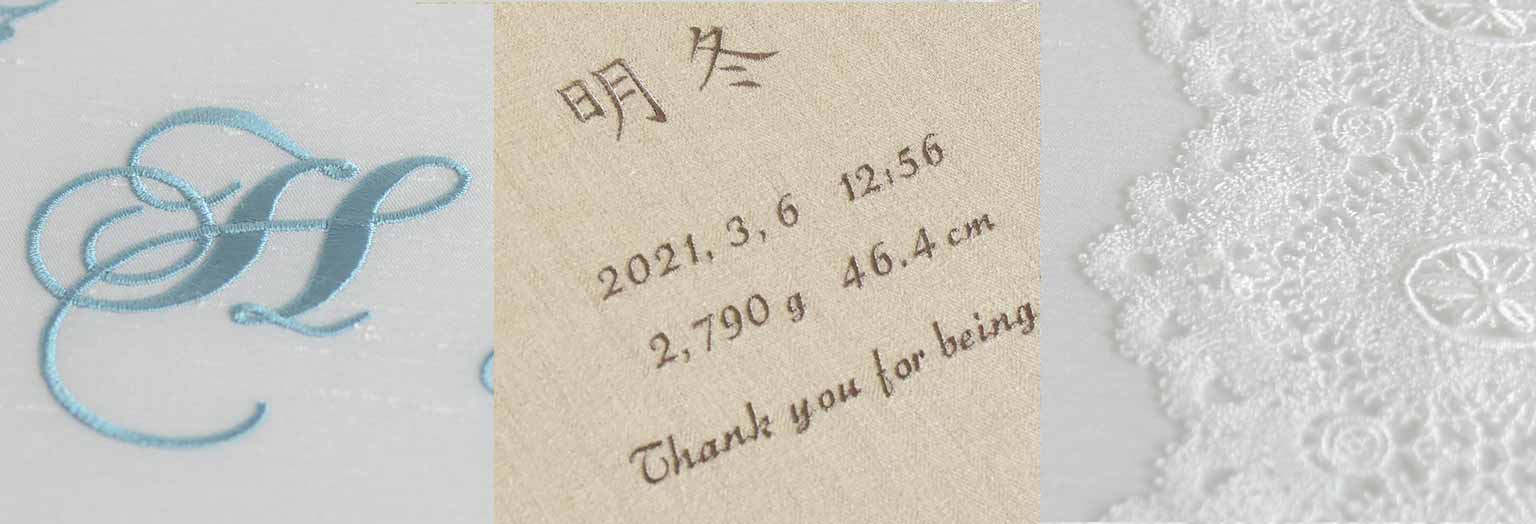 H
明冬
2021, 3, 6 12:56
2,790 g 46.4 cm
Thank you for being